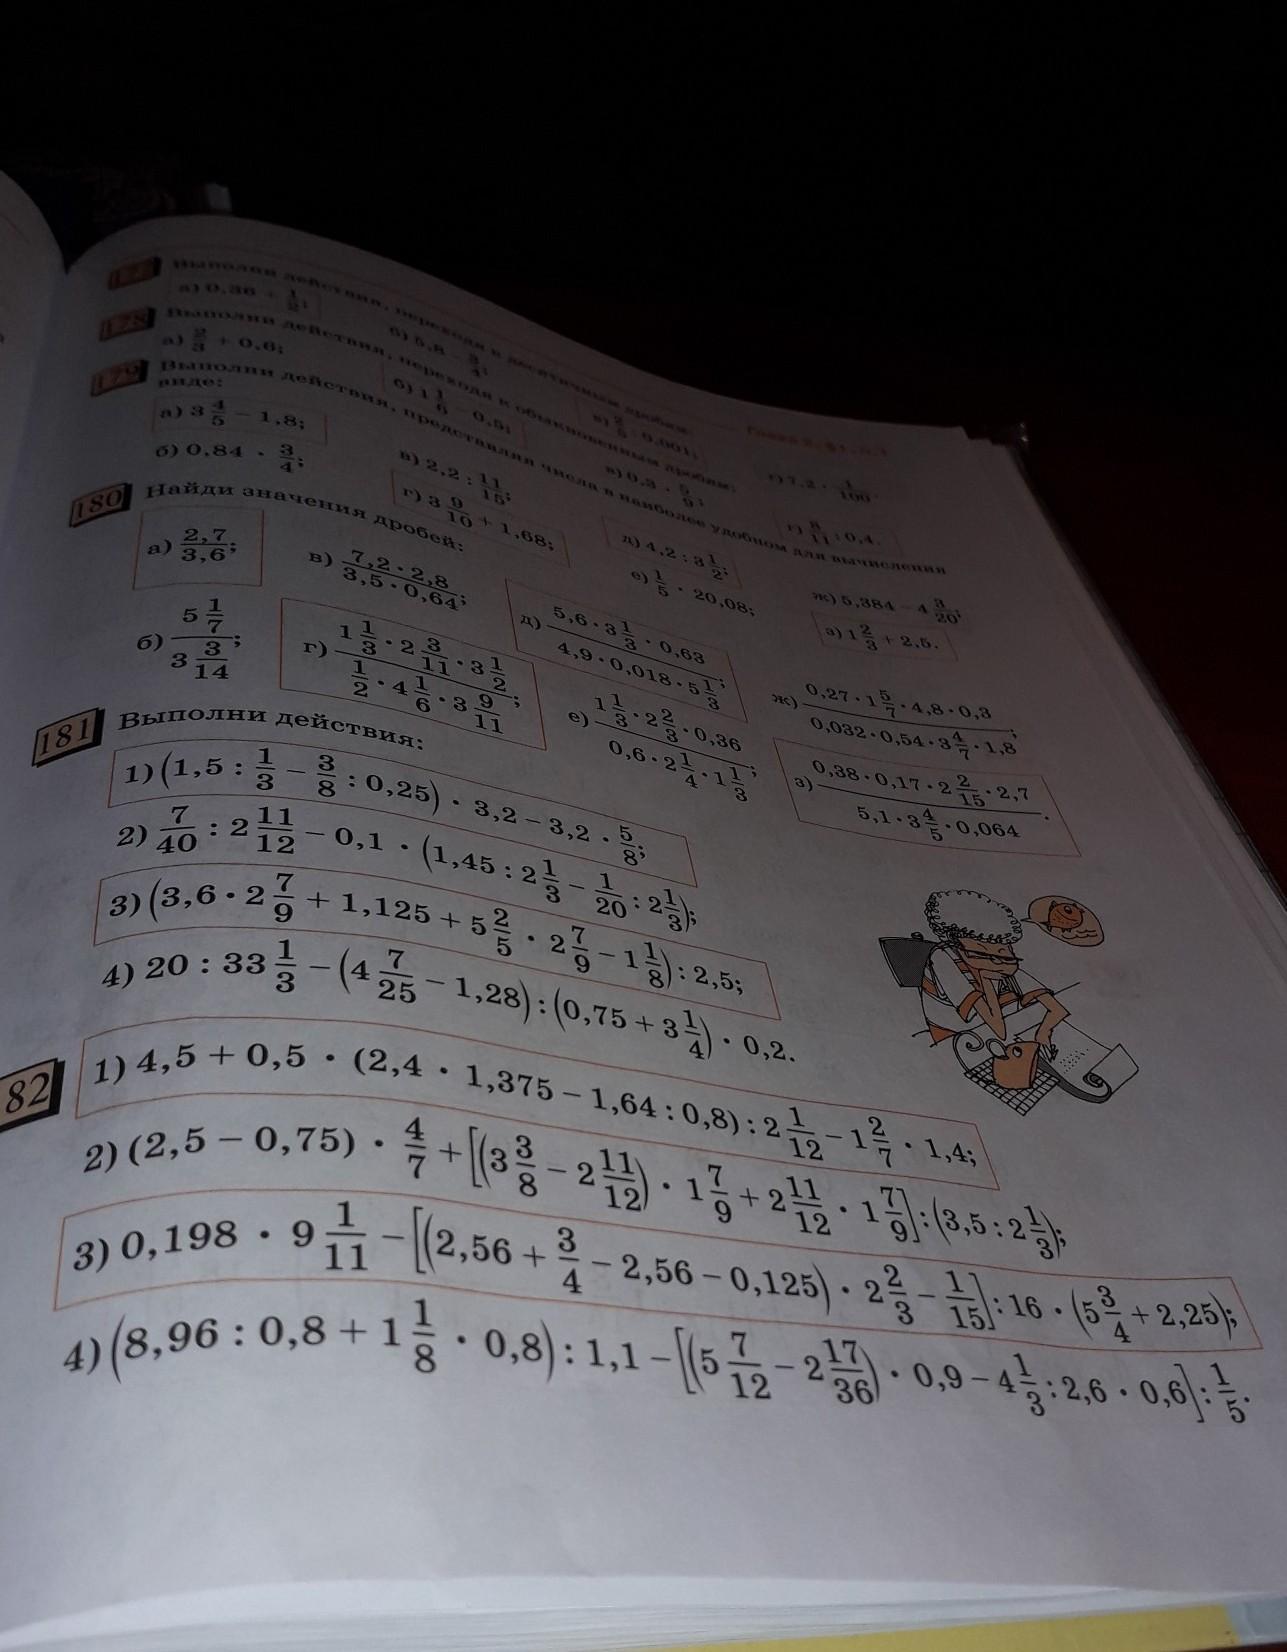 Выполни действия, переходя к десятичным дробям:
а) 0,36 + 1/2; б) 5,8 − 3/4; в) 2/5 : 0,001; г) 7,2 · 1/100.
178 Выполни действия, переходя к обыкновенным дробям:
а) 2/3 + 0,6; б) 1 1/6 − 0,5; в) 0,3 · 5/9; г) 8/11 : 0,4.
179 Выполни действия, представляя числа в наиболее удобном для вычисления
виде:
а) 3 4/5 − 1,8; в) 2,2 : 11/15; д) 4,2 : 3 1/2; ж) 5,384 − 4 3/20;
б) 0,84 · 3/4; г) 3 9/10 + 1,68; е) 1/5 · 20,08; з) 1 2/3 + 2,5.
180 Найди значения дробей:
а) 2,7/3,6; в) (7,2 · 2,8)/(3,5 · 0,64); д) (5,6 · 3 1/3 · 0,63)/(4,9 · 0,018 · 5 1/3); ж) (0,27 · 1 5/7 · 4,8 · 0,3)/(0,032 · 0,54 · 3 4/7 · 1,8);
б) (5 1/7)/(3 3/14); г) (1 1/3 · 2 3/11 · 3 1/2)/(1/2 · 4 1/6 · 3 9/11); е) (1 1/3 · 2 2/3 · 0,36)/(0,6 · 2 1/4 · 1 1/3); з) (0,38 · 0,17 · 2 2/15 · 2,7)/(5,1 · 3 4/5 · 0,064).
181 Выполни действия:
1) (1,5 : 1/3 − 3/8 : 0,25) · 3,2 − 3,2 · 5/8;
2) 7/40 : 2 11/12 − 0,1 · (1,45 : 2 1/3 − 1/20 : 2 1/3);
3) (3,6 · 2 7/9 + 1,125 + 5 2/5 · 2 7/9 − 1 1/8) : 2,5;
4) 20 : 33 1/3 − (4 7/25 − 1,28) : (0,75 + 3 1/4) · 0,2.
82 1) 4,5 + 0,5 · (2,4 · 1,375 − 1,64 : 0,8) : 2 1/12 − 1 2/7 · 1,4;
2) (2,5 − 0,75) · 4/7 + [(3 3/8 − 2 11/12) · 1 7/9 + 2 11/12 · 1 7/9] : (3,5 : 2 1/3);
3) 0,198 · 9 1/11 − [(2,56 + 3/4 − 2,56 − 0,125) · 2 2/3 − 1/15] : 16 · (5 3/4 + 2,25);
4) (8,96 : 0,8 + 1 1/8 · 0,8) : 1,1 − [(5 7/12 − 2 17/36) · 0,9 − 4 1/3 : 2,6 · 0,6] : 1/5.